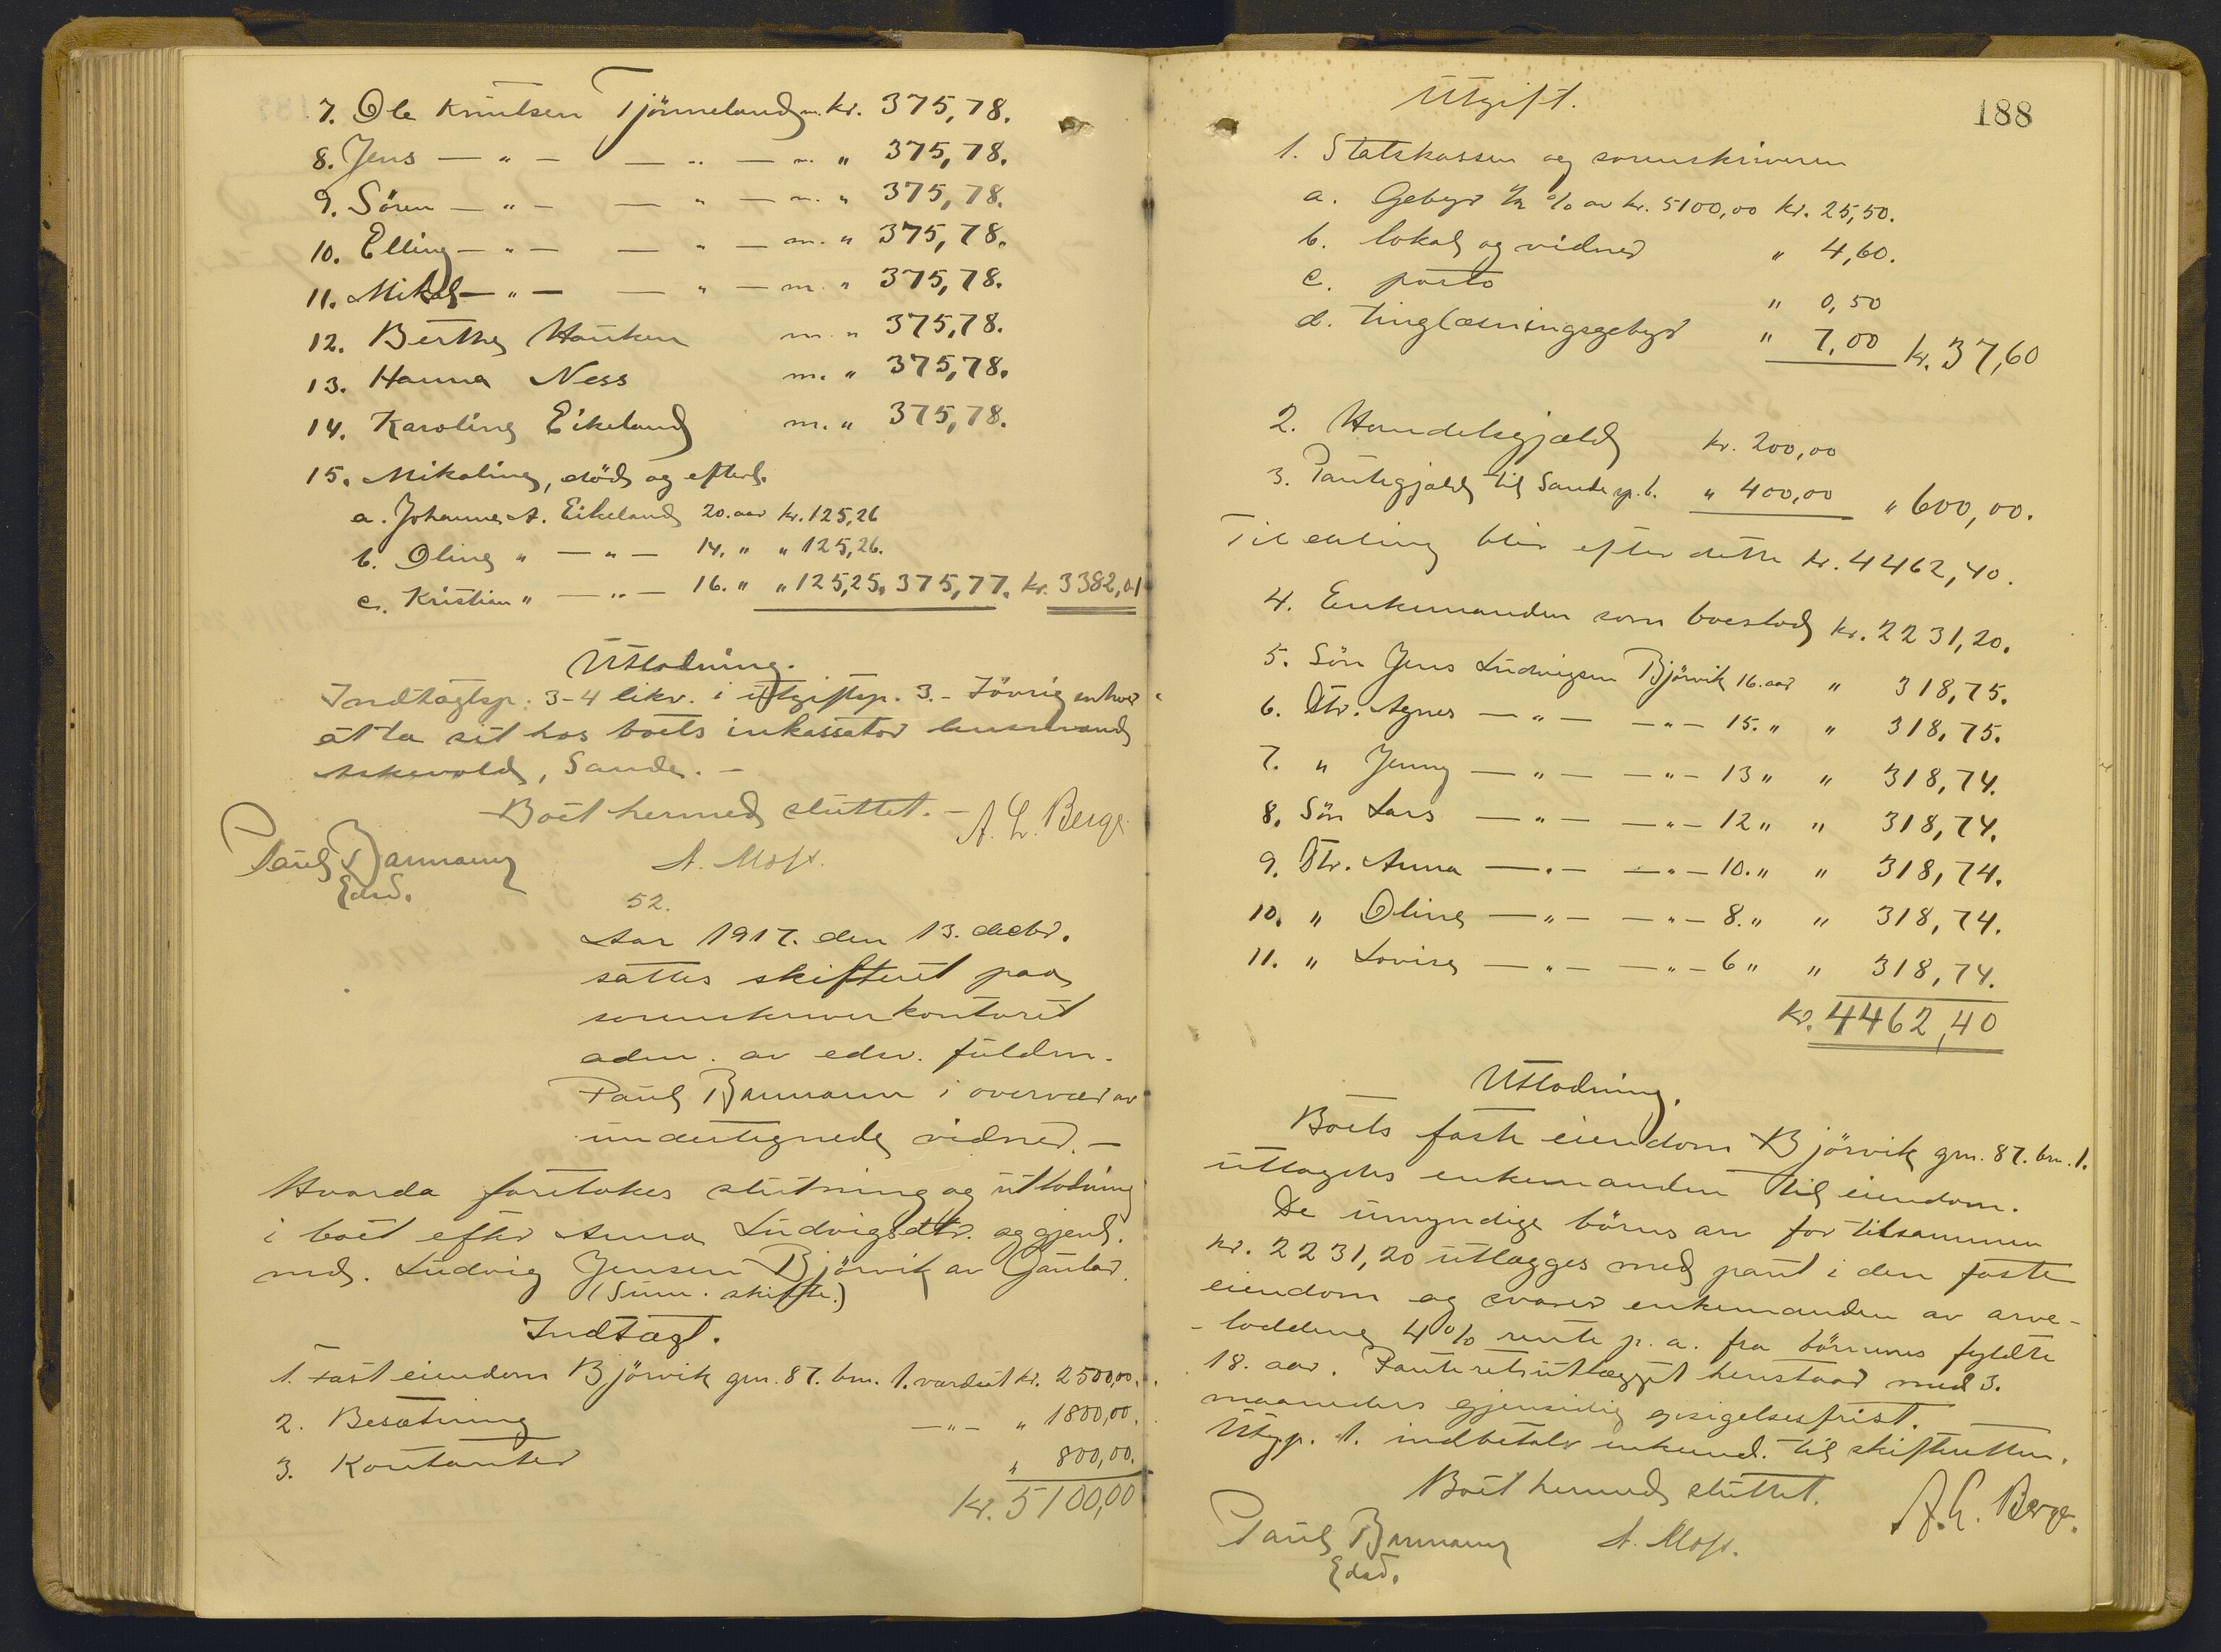 7. Ole Knutsen Tjönneland m. kr. 375,78.
8. Jens — " — — " — m. " 375,78.
9. Sören — " — — " — m. " 375,78.
10. Elling — " — — " — m. " 375,78.
11. Mikal — " — — " — m. " 375,78.
12. Berthe Hauken m. " 375,78.
13. Hanna Ness m. " 375,78.
14. Karoline Eikeland m. " 375,78.
15. Mikaline, död og efterl.
a. Johannes A. Eikeland 20. aar kr. 125,26
b. Oline " — " — 14. " " 125,26.
c. Kristian " — " — 16. " " 125,25. 375,77. kr. 3382,01
Utlodning.
Indtægtsp. 3-4 likv. i utgiftsp. 3. - Iövrig enhver
at ta sit hos boets inkassator lensmand
Askevold, Sande. —
Boet hermed sluttet. —
A. L. Berge
Paul Barmann
Edsv.
A. Moss.
52.
Aar 1917. den 13. decbr.
sattes skifteret paa
sorenskriverkontoret
adm. av edsv. fuldm.
Paul Barmann i overvær av
undertegnede vidner. —
Hvorda foretokes slutning og utlodning
i boet efter Anna Ludvigsdtr. og gjenl.
md. Ludvig Jensen Björvik av Gaular.
(Sum. skifte.)
Indtægt.
1. Fast eiendom Björvik gm. 87. bm. 1. værdsat kr. 2500,00.
2. Besætning — " — " 1800,00.
3. Kontanter " 800,00.
kr. 5100,00
188
Utgift.
1. Statskassen og sorenskriveren
a. Gebyr ½ % av kr. 5100,00 kr. 25,50.
b. lokal og vidner " 4,60.
c. porto " 0,50
d. tinglæsningsgebyr " 7,00 kr. 37,60
2. Handelsgjæld kr. 200,00
3. Pantegjæld til Sande sp.b. " 400,00 " 600,00.
Til deling blir efter dette kr. 4462,40.
4. Enkemanden som boeslod kr. 2231,20.
5. Sön Jens Ludvigsen Björvik 16. aar " 318,75.
6. Dtr. Agnes — " — — " — 15. " " 318,75.
7. " Jenny — " — — " — 13 " " 318,74.
8. Sön Lars — " — — " — 12 " " 318,74.
9. Dtr. Anna — " — — " — 10. " " 318,74.
10. " Oline — " — — " — 8. " " 318,74.
11. " Lovise — " — — " — 6 " " 318,74.
kr. 4462,40
Utlodning.
Boets faste eiendom Björvik gm. 87. bm. 1.
utlægges enkemanden til eiendom.
De umyndige börns arv for tilsammen
kr. 2231,20 utlægges med pant i den faste
eiendom og svarer enkemanden av arve-
- loddene 4 % rente p. a. fra börnenes fyldte
18. aar. Panteretsutlægget henstaar med 3.
maaneders gjensidig opsigelsesfrist.
Utgp. 1. indbetaler enkemd. til skifteretten.
Boet hermed sluttet.
A. L. Berge.
Paul Barmann
Edsv.
A. Moss.